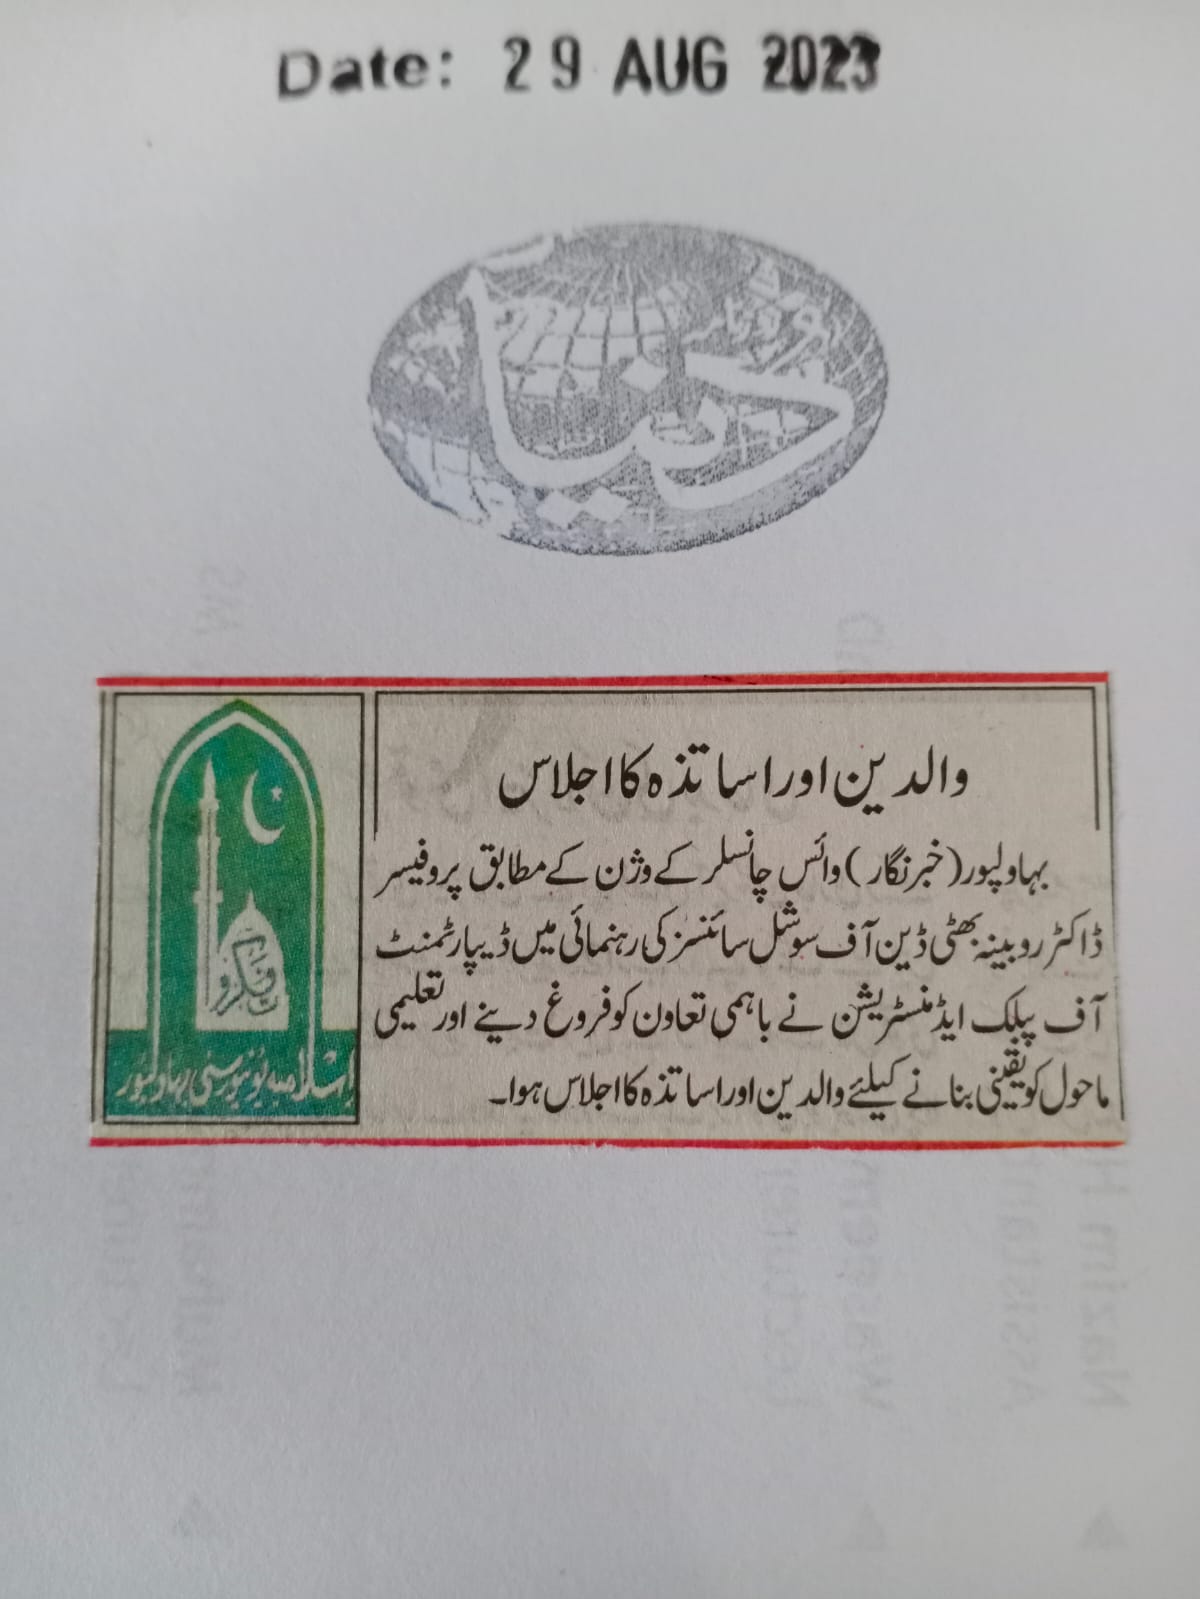 Date: 29 AUG 2023
روزنامہ
دُنیا
والدین اور اساتذہ کا اجلاس
بہاولپور (خبرنگار) وائس چانسلر کے وژن کے مطابق پروفیسر
ڈاکٹر روبینہ بھٹی ڈین آف سوشل سائنسز کی رہنمائی میں ڈیپارٹمنٹ
آف پبلک ایڈمنسٹریشن نے باہمی تعاون کو فروغ دینے اور تعلیمی
ماحول کو یقینی بنانے کیلئے والدین اور اساتذہ کا اجلاس ہوا۔
اسلامیہ یونیورسٹی بہاولپور